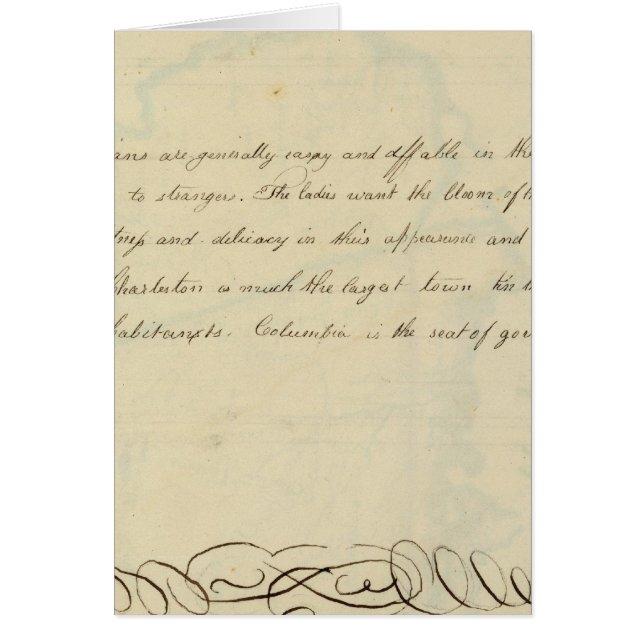 ans are generally easy and affable in the
to strangers. The ladies want the bloom of th
tness and delicacy in their appearance and
harleston is much the largest town tin th
habitanxts. Columbia is the seat of gov